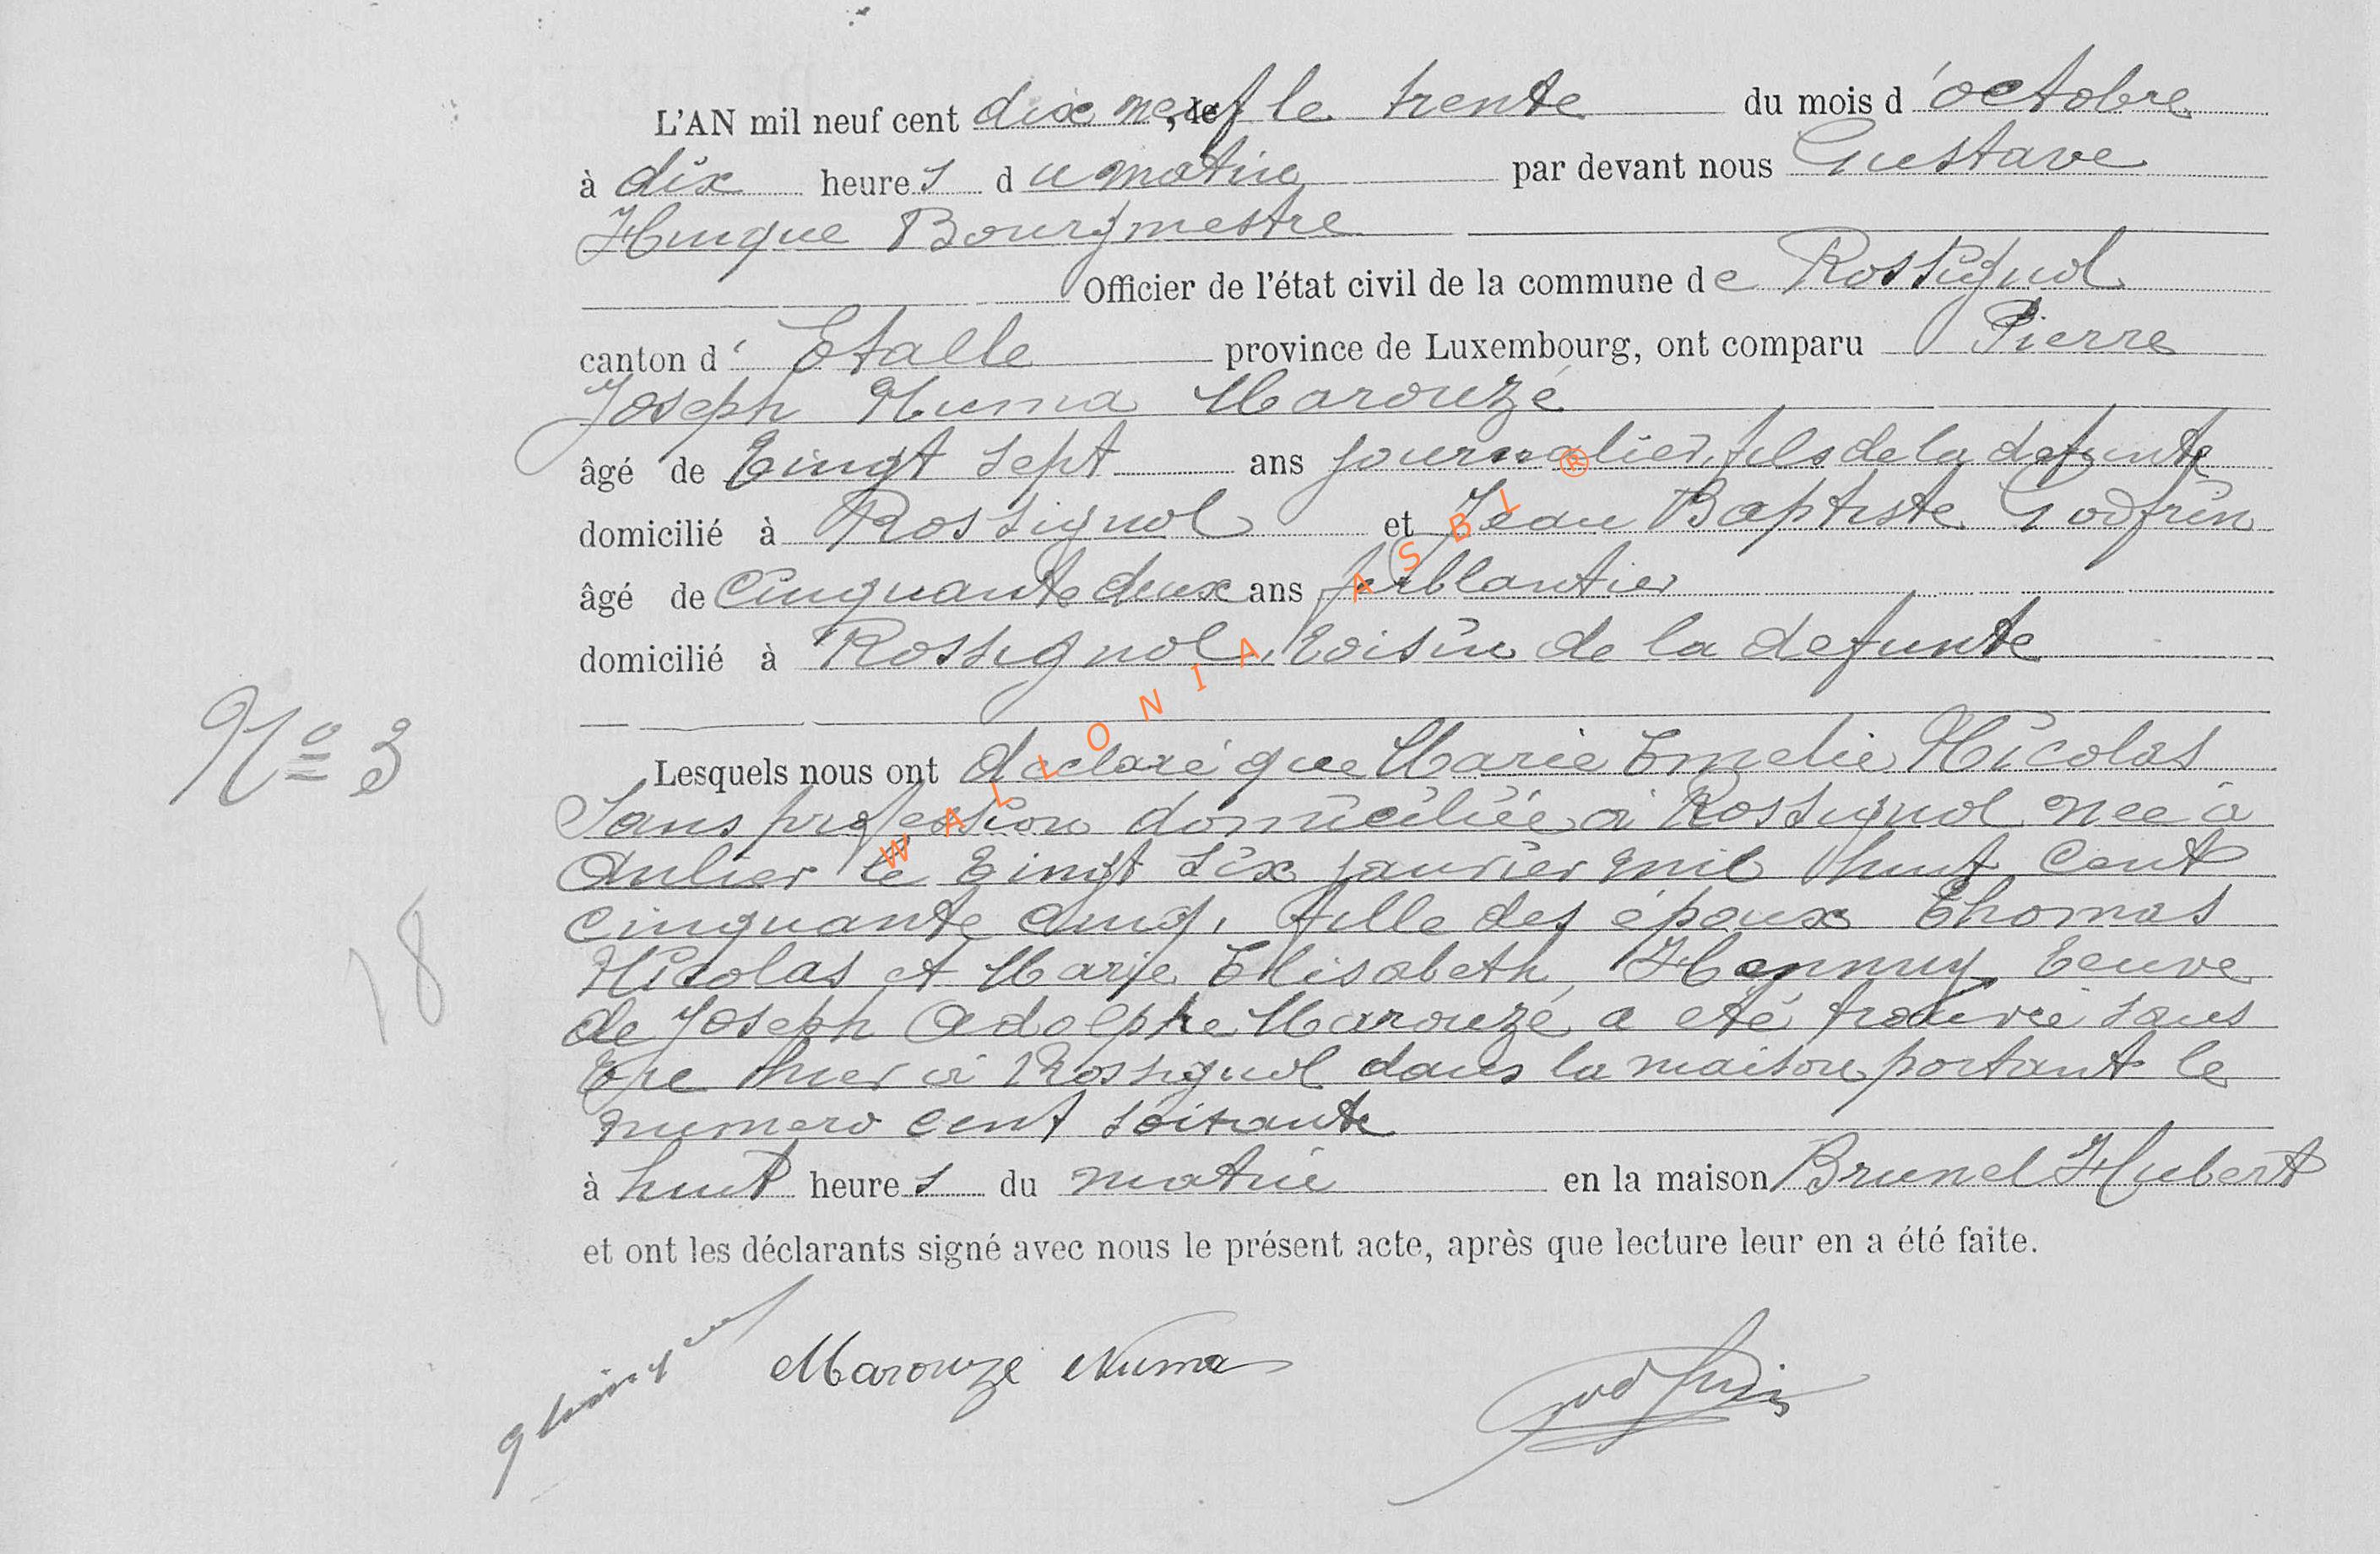 L'AN mil neuf cent dix neuf le trente du mois d'octobre
à dix heures du matin par devant nous Gustave
Hinque Bourgmestre
Officier de l'état civil de la commune de Rossignol
canton d'Etalle province de Luxembourg, ont comparu Pierre
Joseph Numa Marouzé
âgé de Vingt sept ans journalier, fils de la defunte
domicilié à Rossignol et Jean Baptiste Godfrin
âgé de Cinquante deux ans ferblantier
domicilié à Rossignol, Voisin de la defunte
Nº 3
Lesquels nous ont declaré que Marie Emelie Nicolas
Sans profession domiciliée à Rossignol née à
Anlier le Vingt six janvier mil huit Cent
Cinquante Cinq, fille des époux Thomas
18
Nicolas et Marie Elisabeth Hannuy Veuve
de Joseph Adolphe Marouzé a eté trouvée sans
Vie hier à Rossignol dans la maison portant le
numero cent soixante
à huit heures du matin en la maison Brunel Hubert
et ont les déclarants signé avec nous le présent acte, après que lecture leur en a été faite.
Marouzé Numa
Godfrin
WALLONIA ASBL ®